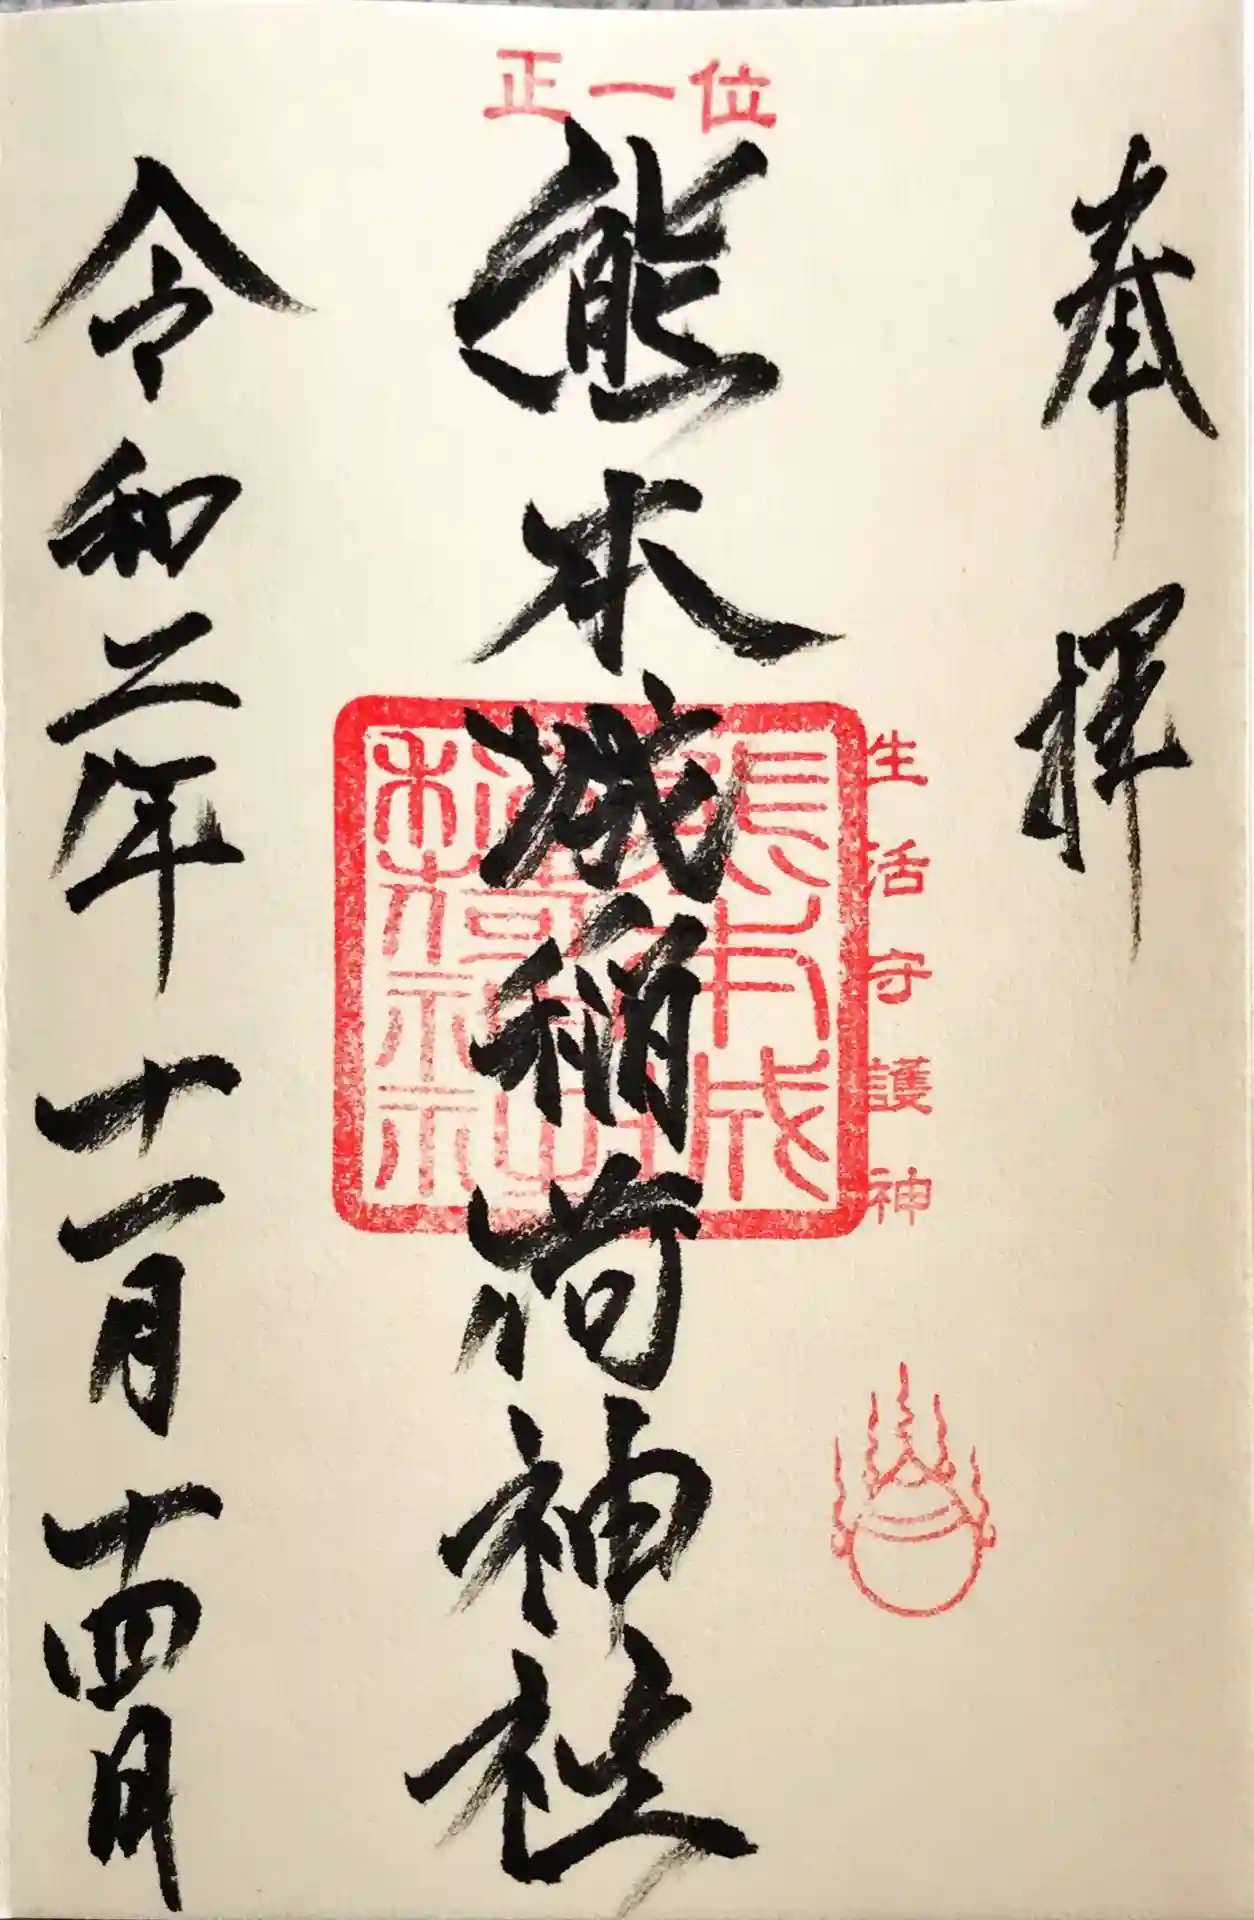 奉拝
正一位
熊本城稲荷神社
生活守護神
令和二年十一月十四日